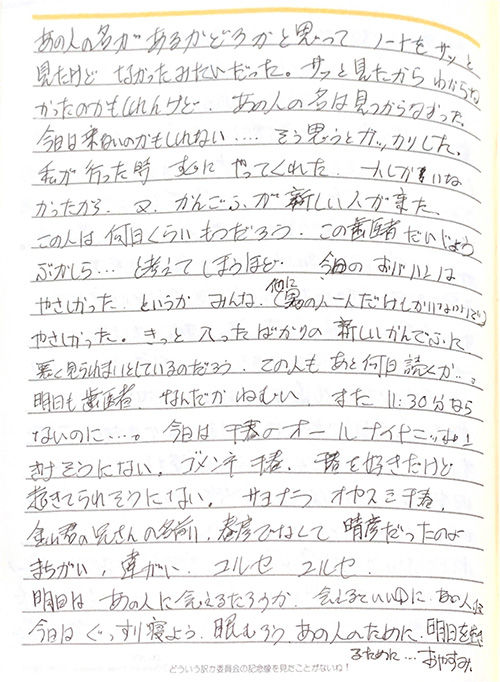 あの人の名があるかどうかと思って ノートをサッと
見たけど なかったみたいだった。サッと見たからわからな
かったのかもしれんけど、あの人の名は見つからなかった。
今日は来ないのかもしれない‥‥そう思うとガッカリした。
私が行った時 すぐに やってくれた。一人しかいな
かったから。又、かんごふが新しい人がきた。
この人は何日くらいもつだろう。この歯医者だいじょう
ぶかしら… と考えてしまうほど。今日の
やさしかった。というか みんな。
やさしかった。きっと入ったばかりの新しいかんごふに、
悪く見られまいとしているのだろう。この人もあと何日続くか…。
明日も歯医者。なんだかねむい。まだ 11:30分なら
ないのに‥‥。今日は千春のオールナイトニッポン!
きけそうにない。ゴメンネ千春。千春を好きだけど
起きてられそうにない。サヨナラ オヤスミ千春。
の兄さんの名前、春彦でなくて 晴彦だったのよ
まちがい、違がい。ユルセ ユルセ。
明日は あの人に会えるだろうか。会えるといい あの人
今日はぐっすり寝よう。眠むろう あの人のために、明日を
るために… おやすみ。
どういう訳か委員会の記念像を見たことがないね!